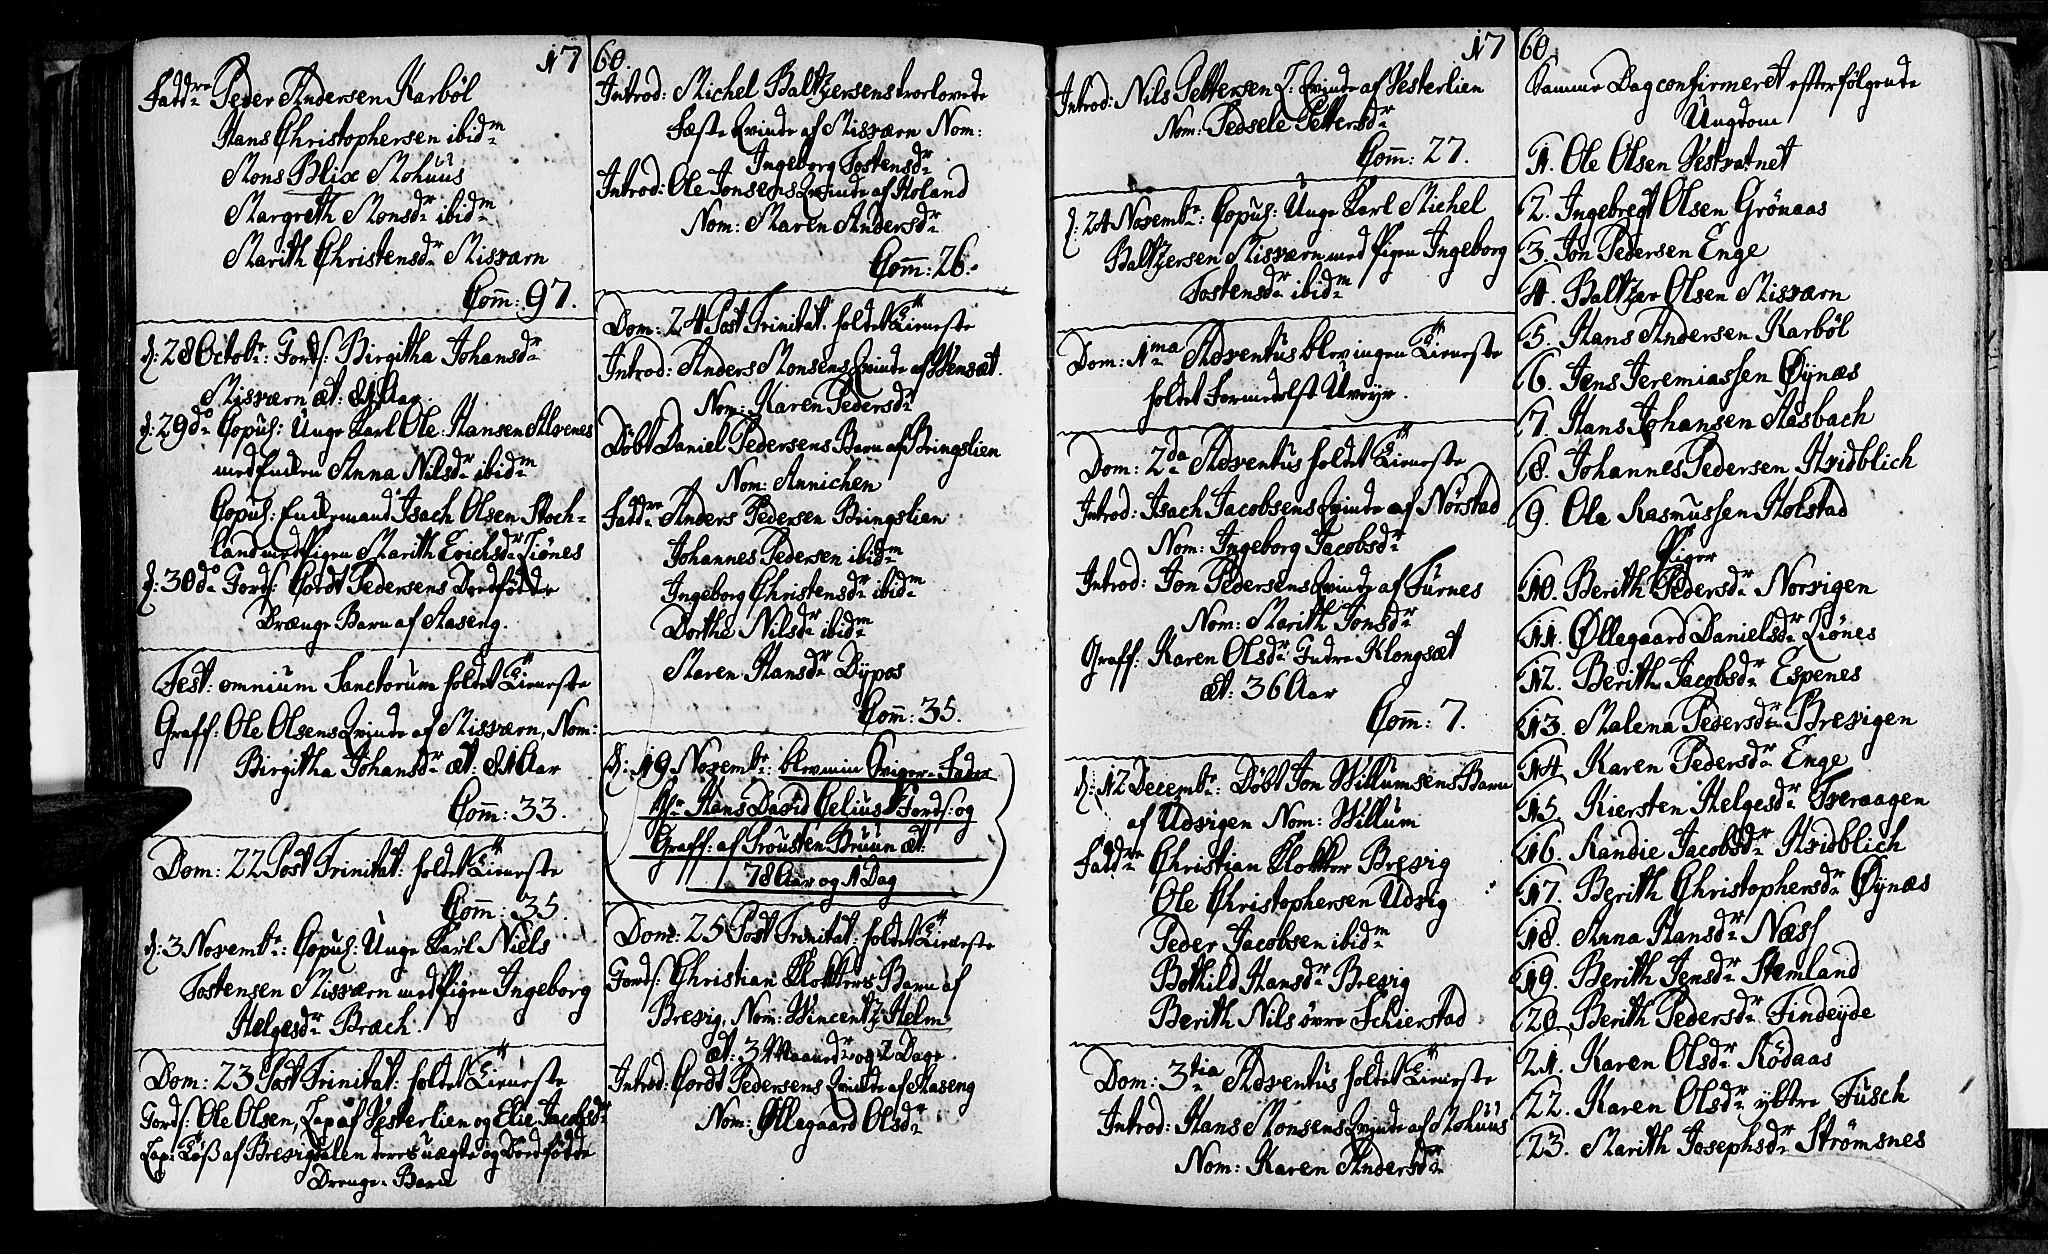 1760.
Fadd: Peder Andersen Karböl
Hans Christophersen ibid:
Mons Blix Mohuus
Margreth Monsdr: ibid:
Marith Christensdr: Misværn
Com̄: 97.
d: 28 Octobr: Jords: Birgitha Johansdr:
Misværn æt: 81 Aar.
d: 29do Copul: Unge Karl Ole Hansen Alvenes
med Enken Anna Nilsdr: ibidm
Copul: Enkemand Isach Olsen Stoch-
land med Pigen Marith Erichsdr: Liönes
d: 30do Jords: Cordt Pedersens Dödfödde
Drænge Barn af Aaseng.
Fest: omnium Sanctorum holdet Tieneste
Graff: Ole Olsens Qvinde af Misværn, Nom:
Birgitha Johansdr: æt: 81 Aar
Com̄: 33.
Dom: 22 Post Trinitat: holdet Tieneste
Com̄: 35.
d: 3 Novembr: Copul: Unge Karl Niels
Tostensen Misværn med Pigen Ingeborg
Helgesdr: Bræch.
Dom: 23 Post Trinitat: holdet Tieneste
Jords: Ole Olsen, Lap af Vesterlien og Elie Jacobsdr:
Lap: af Brevigdalen deres uægte og Dödfödde
Drenge-Barn
Introd: Michel Baltzersens trorlovede
Fæste Qvinde af Misværn Nom:
Ingeborg Tostensdr:
Introd: Ole Jonsens Qvinde af Holand
Nom: Maren Andersdr:
Com̄: 26.
Dom: 24 Post Trinitat: holdet Tieneste
Introd: Anders Monsens Qvinde af Wensæt.
Nom: Karen Pedersdr:
Döbt Daniel Pedersens Barn af Bringslien
Nom: Annichen
Fadd: Anders Pedersen Bringslien
Johannes Pedersen ibidm
Ingeborg Christensdr: ibidm
Dorthe Nilsdr: ibidm
Maren Hansdr: Dypos
Com̄: 35.
d: 19 Novembr: blev min Sviger-Fader
Hr: Hans David Celius Jords: og
Graff: af Trousten Bruun æt:
78 Aar og 1 Dag
Dom: 25 Post Trinitat: holdet Tieneste
Jords: Christian Klokkers Barn af
Brevig, Nom: Wincentz Helm
æt: 3 Maaneder og 2 Dage.
Introd: Cordt Pedersens Qvinde af Aaseng
Nom: Øllegaard Olsdr:
1760.
Introd: Nils Pettersen L: Qvinde af Vesterlien
Nom: Sedsele Pettersdr:
Com̄: 27.
d: 24 Novembr: Copul: Unge Karl Michel
Baltzersen Misværn med Pigen Ingeborg
Tostensdr: ibidm
Dom: 1ma Adventus blev ingen Tieneste
holdet formedelst Uveyr.
Dom: 2da Adventus holdet Tieneste
Introd: Isach Jacobsens Qvinde af Nörstad
Nom: Ingeborg Jacobsdr:
Introd: Jon Pedersens Qvinde af Furnes
Nom: Marith Jonsdr:
Graff: Karen Olsdr: Indre Klongsæt
æt: 36 Aar
Com̄: 7.
d: 12 Decembr: Döbt Jon Willumsens Barn
af Udvigen Nom: Willum
Fadd: Christian Klokker Brevig
Ole Christophersen Udvig
Peder Jacobsen ibidm
Bothild Hansdr: Brevig
Berith Nils övre Schierstad
Dom: 3tia Adventus holdet Tieneste
Introd: Hans Monsens Qvinde af Mohuus
Nom: Karen Andersdr:
Samme Dag confirmeret efterfölgende
Ungdom
1. Ole Olsen Vestvatnet
2. Ingebregt Olsen Grönaas
3. Jon Pedersen Enge
4. Baltzer Olsen Misværn
5. Hans Andersen Karböl
6. Jens Jeremiassen Øynæs
7. Hans Johansen Aasbach
8. Johannes Pedersen Hvidblich
9. Ole Rasmussen Holstad
Piger
10. Berith Pedersdr: Norvigen
11. Øllegaard Danielsdr: Liönes
12. Berith Jacobsdr: Espenes
13. Malena Pedersdr: Brevigen
14. Karen Pedersdr: Enge
15. Kiersten Helgesdr: Tveraagen
16. Randie Jacobsdr: Hvidblich
17. Berith Christophersdr: Øynæs
18. Anna Hansdr: Næss
19. Berith Jensdr: Stemland
20. Berith Pedersdr: Findeyde
21. Karen Olsdr: Rödaas
22. Karen Olsdr: ybtre Fusch
23. Marith Josephsdr: Strömsnes